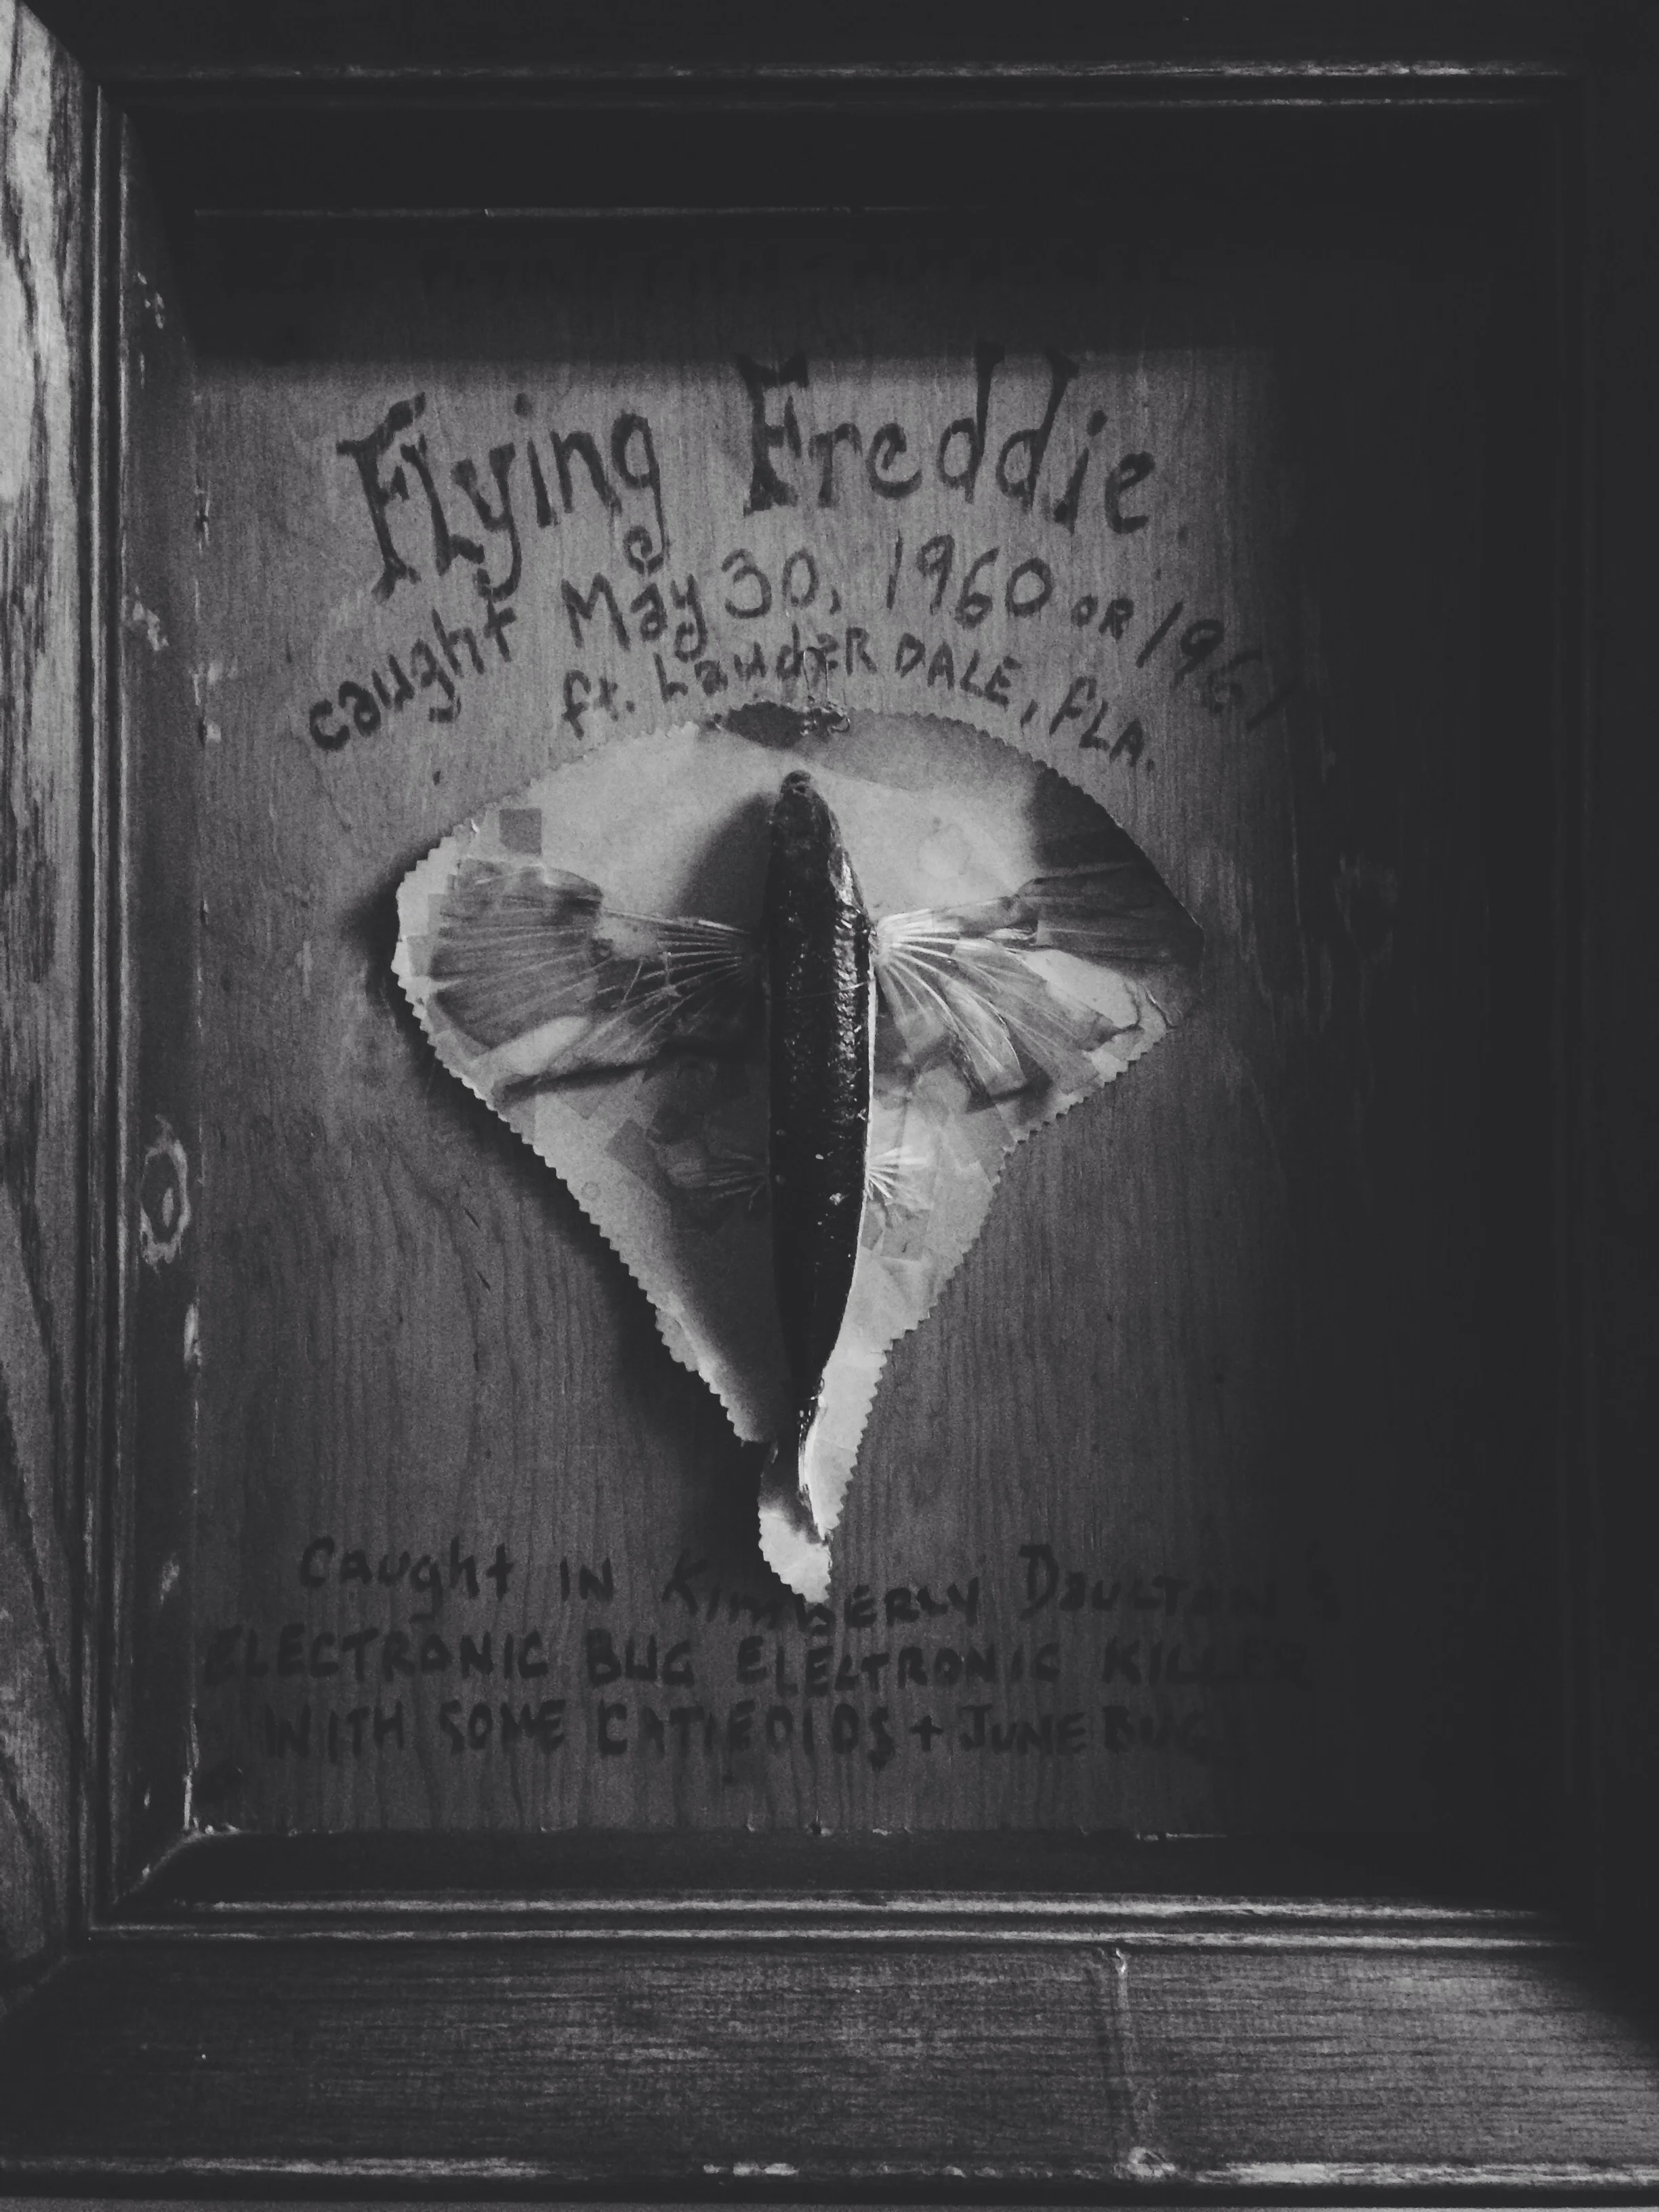 Flying Freddie.
caught May 30, 1960 OR 1961
ft. LauderDALE, fLA.
Caught IN KimBERLY DOULTON'S
ELECTRONIC BUG ELECTRONIC KILLER
WITH SOME CATIEDIDS + JUNE BUGS